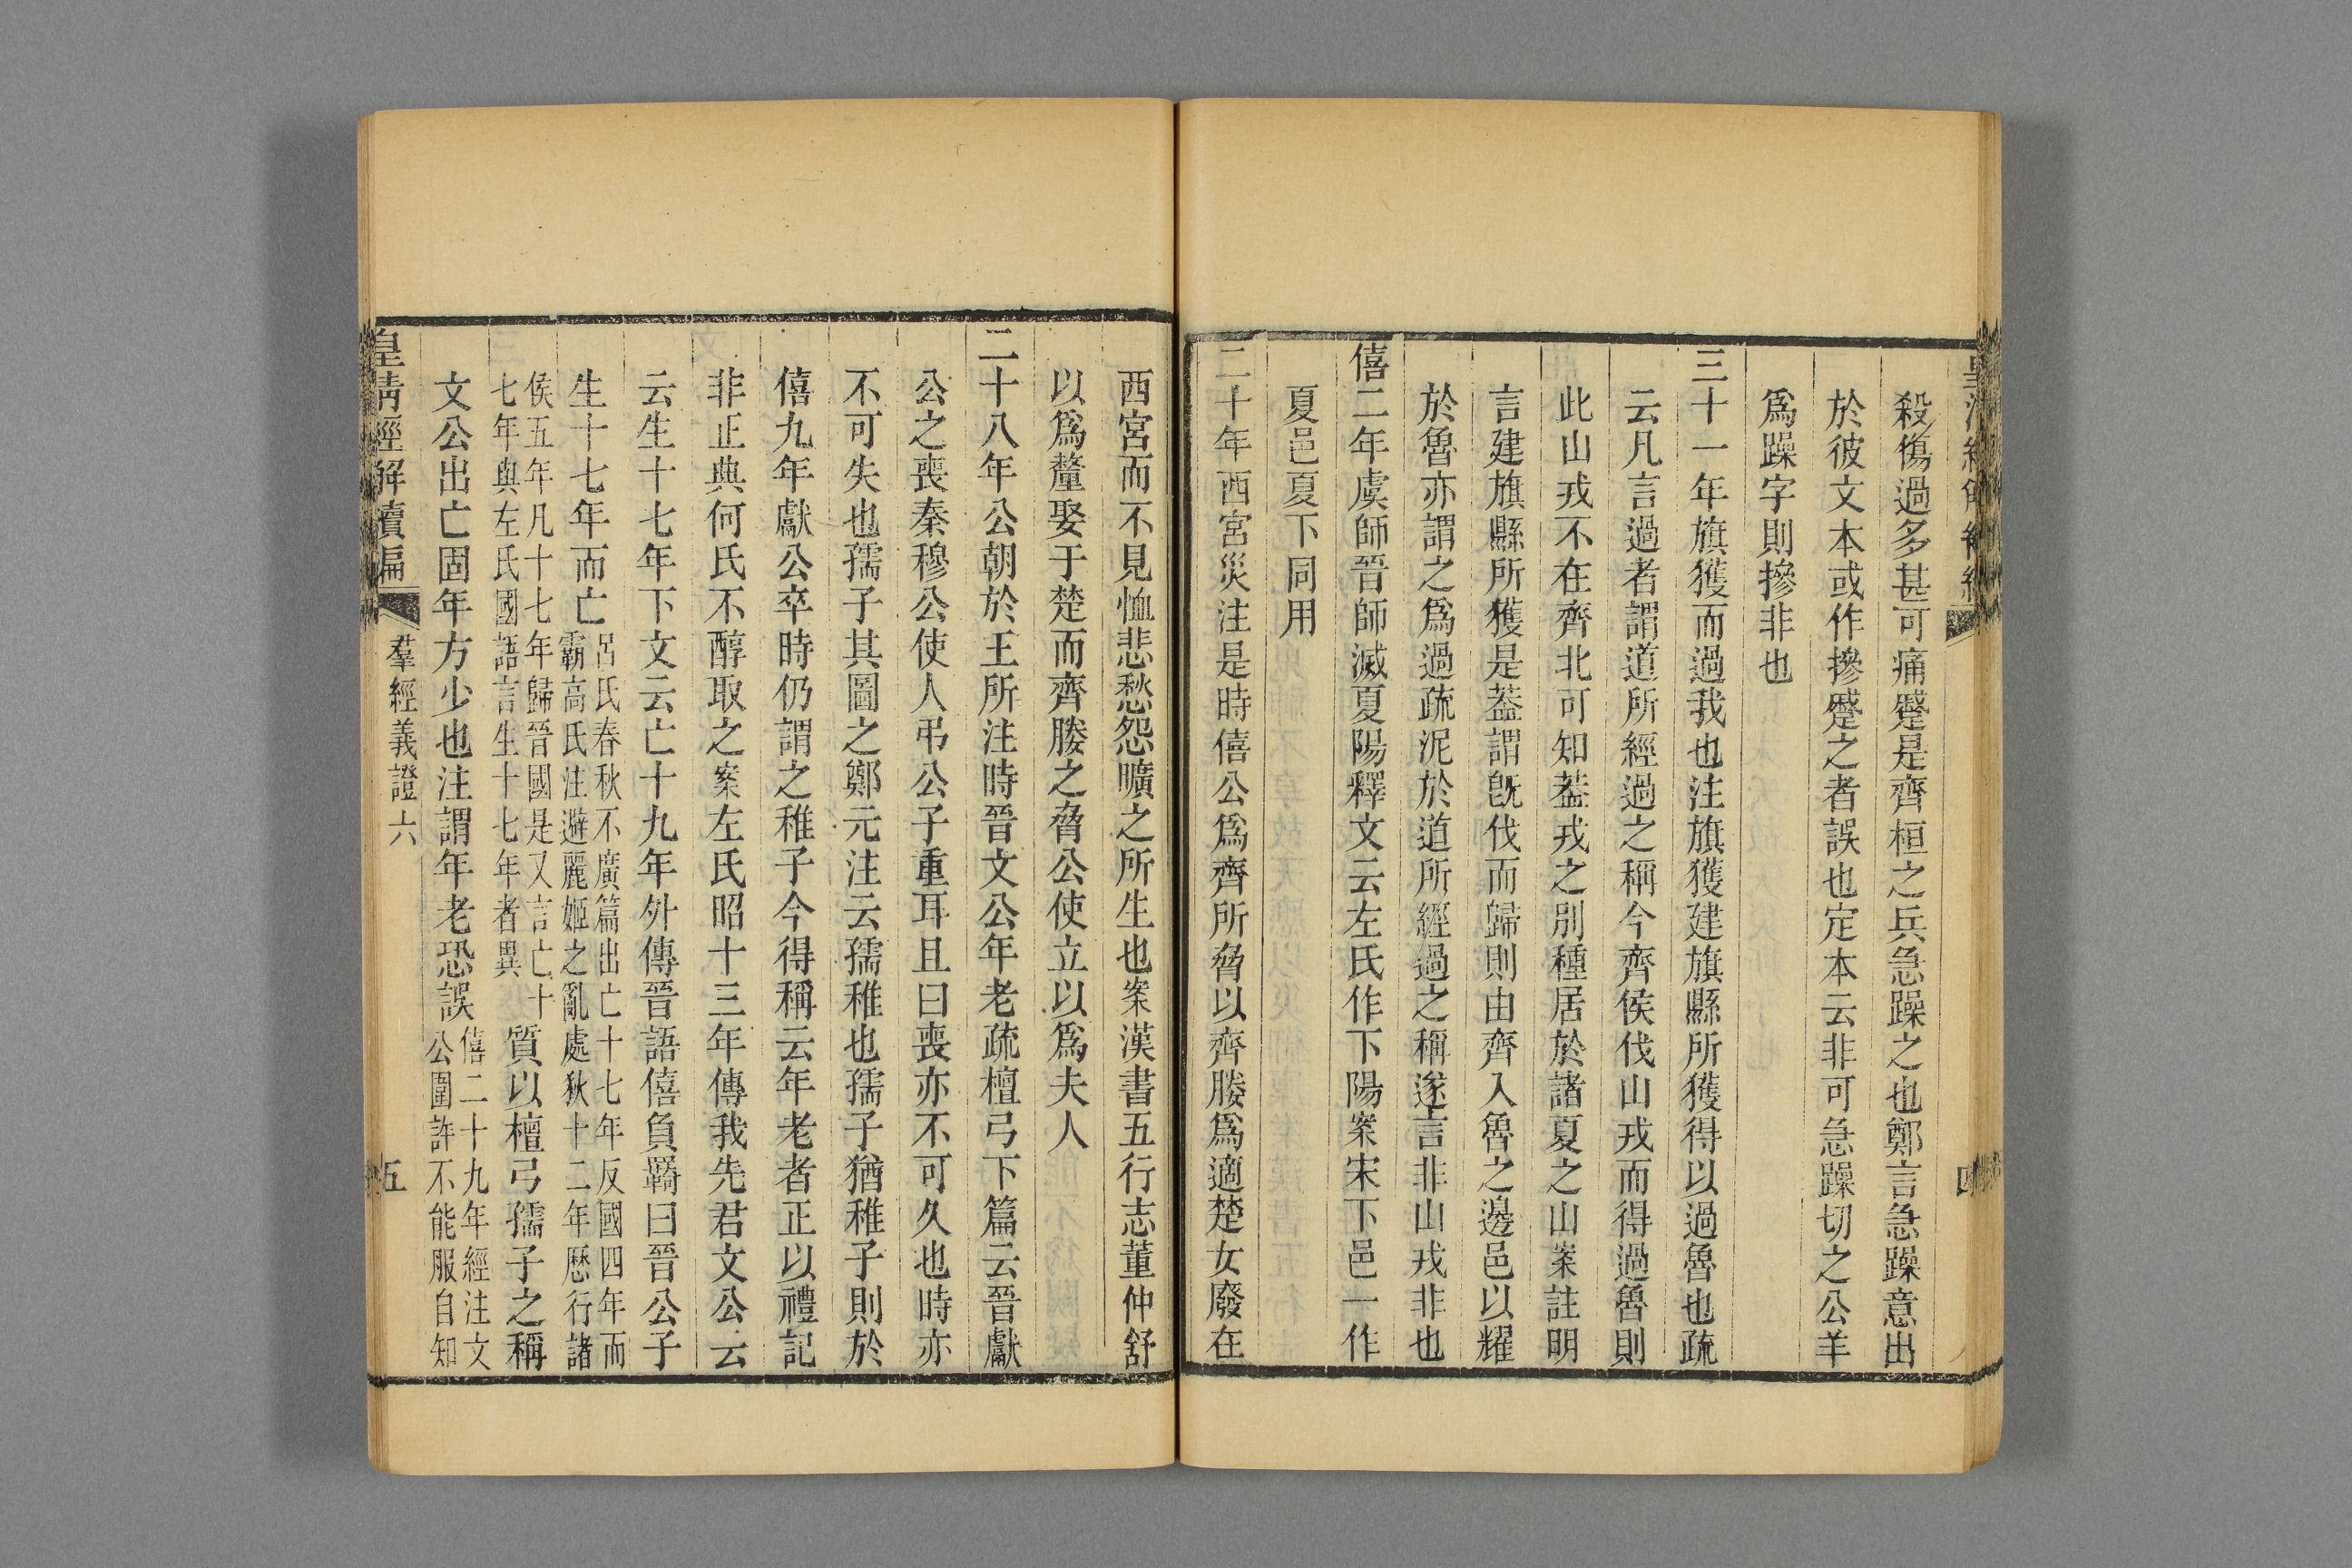 殺傷過多甚可痛蹙是齊桓之兵急躁之也鄭言急躁意出
於彼文本或作摻蹙之者誤也定本云非可急躁切之公羊
爲躁字則摻非也
三十一年旗獲而過我也注旗獲建旗縣所獲得以過魯也疏
云凡言過者謂道所經過之稱今齊侯伐山戎而得過魯則
此山戎不在齊北可知葢戎之別種居於諸夏之山案註明
言建旗縣所獲是葢謂旣伐而歸則由齊入魯之邊邑以耀
於魯亦謂之爲過疏泥於道所經過之稱遂言非山戎非也
僖二年虞師晉師滅夏陽釋文云左氏作下陽案宋下邑一作
夏邑夏下同用
二十年西宮災注是時僖公爲齊所脅以齊媵爲適楚女廢在
西宮而不見恤悲愁怨曠之所生也案漢書五行志董仲舒
以爲釐娶于楚而齊媵之脅公使立以爲夫人
二十八年公朝於王所注時晉文公年老疏檀弓下篇云晉獻
公之喪秦穆公使人弔公子重耳且曰喪亦不可久也時亦
不可失也孺子其圖之鄭元注云孺稚也孺子猶稚子則於
僖九年獻公卒時仍謂之稚子今得稱云年老者正以禮記
非正典何氏不醇取之案左氏昭十三年傳我先君文公云
云生十七年下文云亡十九年外傳晉語僖負羈曰晉公子
生十七年而亡
呂氏春秋不廣篇出亡十七年反國四年而
霸高氏注避麗姬之亂處狄十二年歷行諸
侯五年凡十七年歸晉國是又言亡十
七年與左氏國語言生十七年者異
質以檀弓孺子之稱
文公出亡固年方少也注謂年老恐誤
僖二十九年經注文
公圍許不能服自知
皇清經解續編
羣經義證六
五